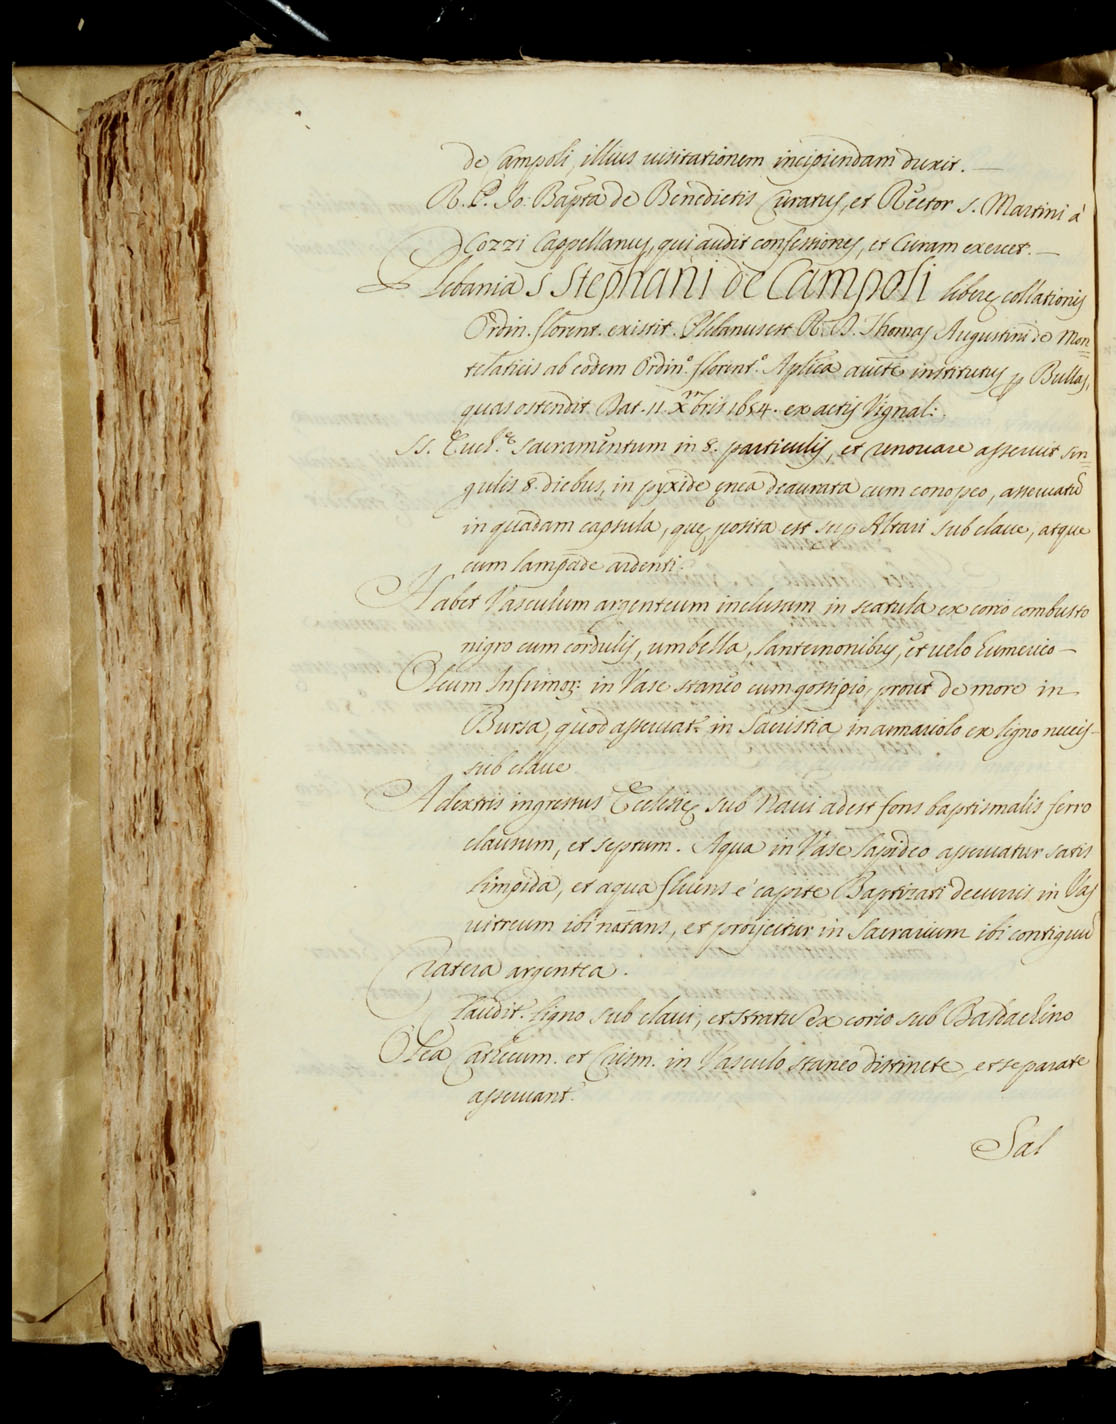 de Campoli, illius uisitationem incipiendam duxit. —
R. P. Io: Bapta de Benedictis Curatus, et Rector S. Martini à
Cozzi Cappellanus, qui audit confessiones, et Curam exercet. —
Plebania S Stephani de Campoli liberę collationis
Ordin. florent. existit. Plebanus est R. D. Thomas Augustini de Mon=
telaticis ab eodem Ordin.º florent.º Aplica aucte institutus p Bullas,
quas ostendit Dat. 11. Xmbris 1654. ex actis Vignal:.
SS. Euch.ę Sacramentum in 8. particulis, et renouare asseruit sin=
gulis 8. diebus, in pyxide ęnea deaurata cum conopeo, asseruatū
in quadam capsula, quę posita est sup Altari sub claue, atque
cum lampade ardenti.
Habet Vasculum argenteum inclusum in scatula ex corio combusto
nigro cum cordulis, umbella, lanternonibus, et uelo humerico —
Oleum Infirmoꝝ: in Vase staneo cum gossipio, prout de more in
Bursa, quod asseruat.r in Sacristia in armariolo ex ligno nucis —
sub claue
A dextris ingressus Ecclesię sub Naui adest fons baptismalis ferro
clausum, et septum. Aqua in Vase lapideo asseruatur satis
limpida, et aqua fluens è capite Baptizati decurris in Vas
uitreum ibi natans, et proijcitur in Sacrarium ibi contiguū
Cratera argentea.
Clauditr. ligno sub claui, et stratu ex corio sub Baldachino
Olea Catecum. et Crism. in Vasculo staneo distincte, et separate
asseruantr.
Sal